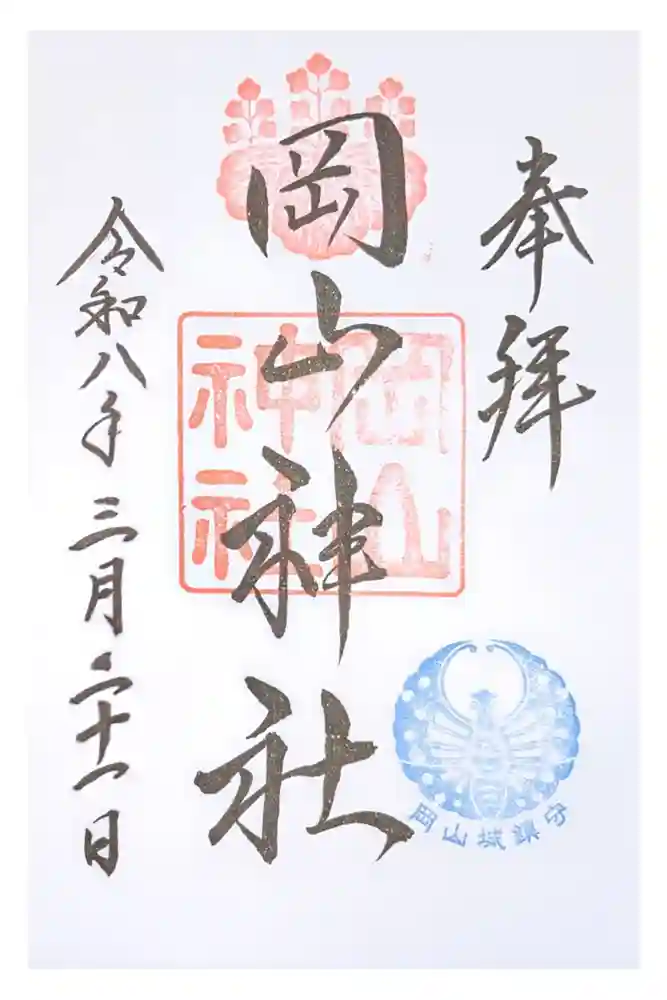 奉拝
岡山神社
岡山神社
岡山城鎮守
令和八年三月二十一日